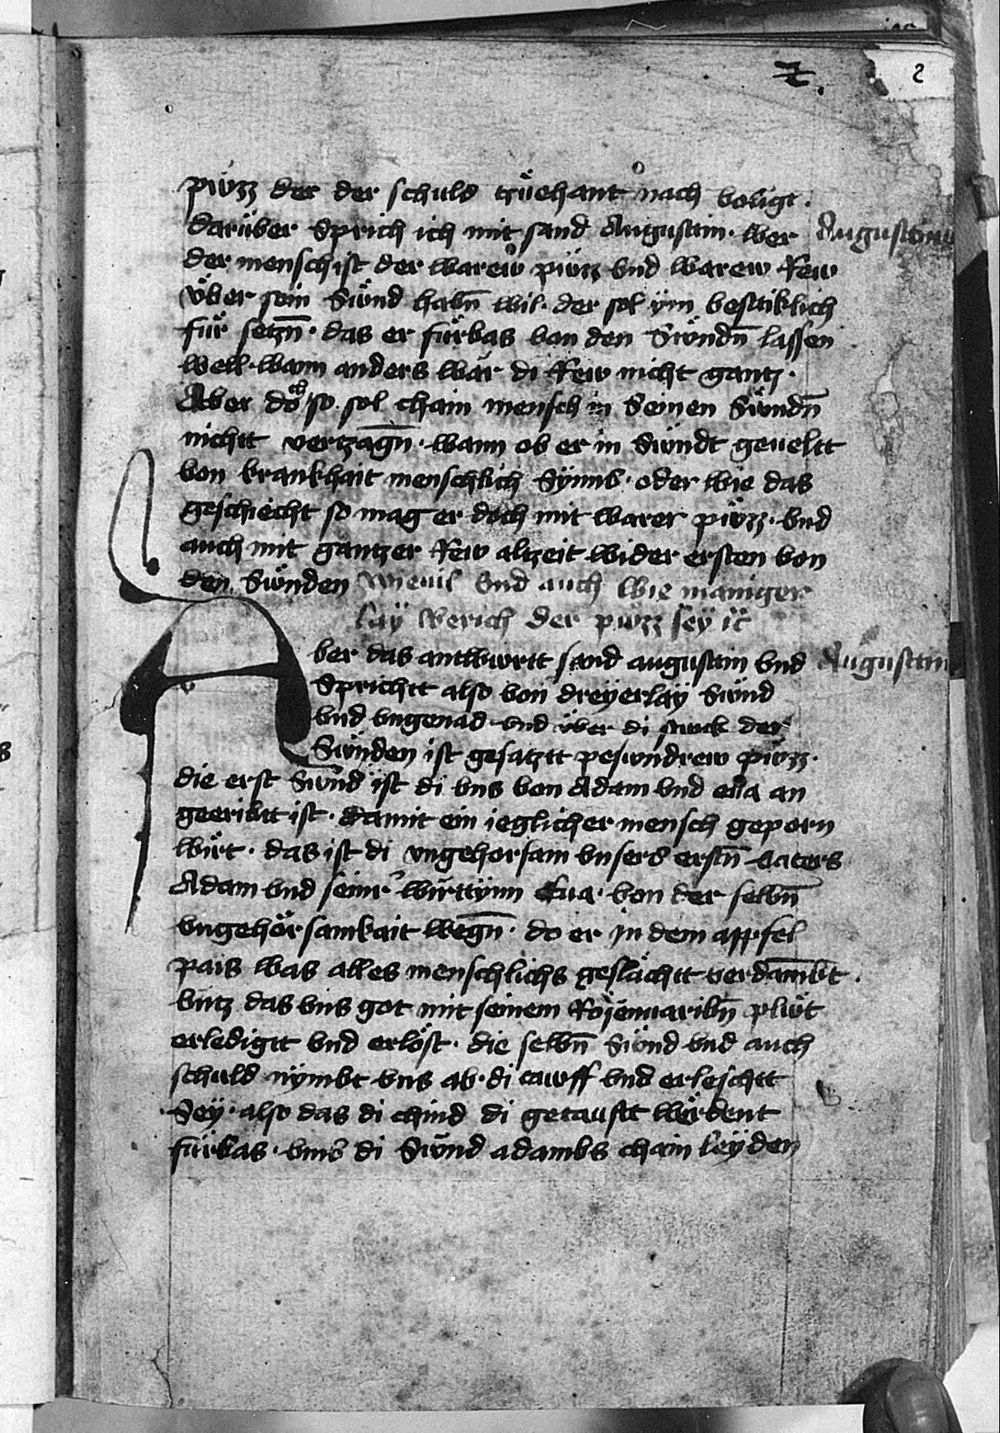 2
püzz der der schuld trüehant nach voligt.
darüber Sprich ich mit sand Augustin. wer Augustinus
der mensch ist der warew püzz vnd warew Rew
vber sein Sünd habn̄ wil. der sol ÿm bestatiklich
für setzn̄. das er fürbas von den Sündn̄ lassen
well. wann anders wär di Rew nicht gantz.
Aber doch so sol chain mensch in Seinen Sündn̄
nichtt vertzagn̄. wann ob er in Sündt geueltt
von krankhait menschlich Sÿnnb. oder wie das
geschiecht so mag er doch mit warer püzz. vnd
auch mit gantzer Rew altzeit wider ersten von
den Sünden wieuil vnd auch wie maniger
laÿ werich der püzz seÿ
Aber das antwurtt sand augustin vnd Augustin
Sprichtt also von dreÿerlaÿ Sünd
vnd vngenad vnd über di stuck der
Sünden ist gesatztt pesundrew püzz.
die erst Sünd ist di vns von Adam vnd eua an
geeribtt ist. damit ein ieglicher mensch geporn
wirt. das ist di vngehorsam vnsers erstn̄ vaters
Adam vnd seinr wirttÿnn Eua. von der selbn̄
vngehörsamkait wegn̄. do er in dem appfel
pais was alles menschlichs geslächtt verdambt.
vntz das vns got mit seinem Rosenuaribn̄ plüt
erledigtt vnd erlöst. die selbn̄ Sünd vnd auch
schuld nÿmbt vns ab. di tawff vnd erleschtt
Seÿ. also das di chind di getaufft werdent
fürbas. vmb di Sünd adambs chain leÿden